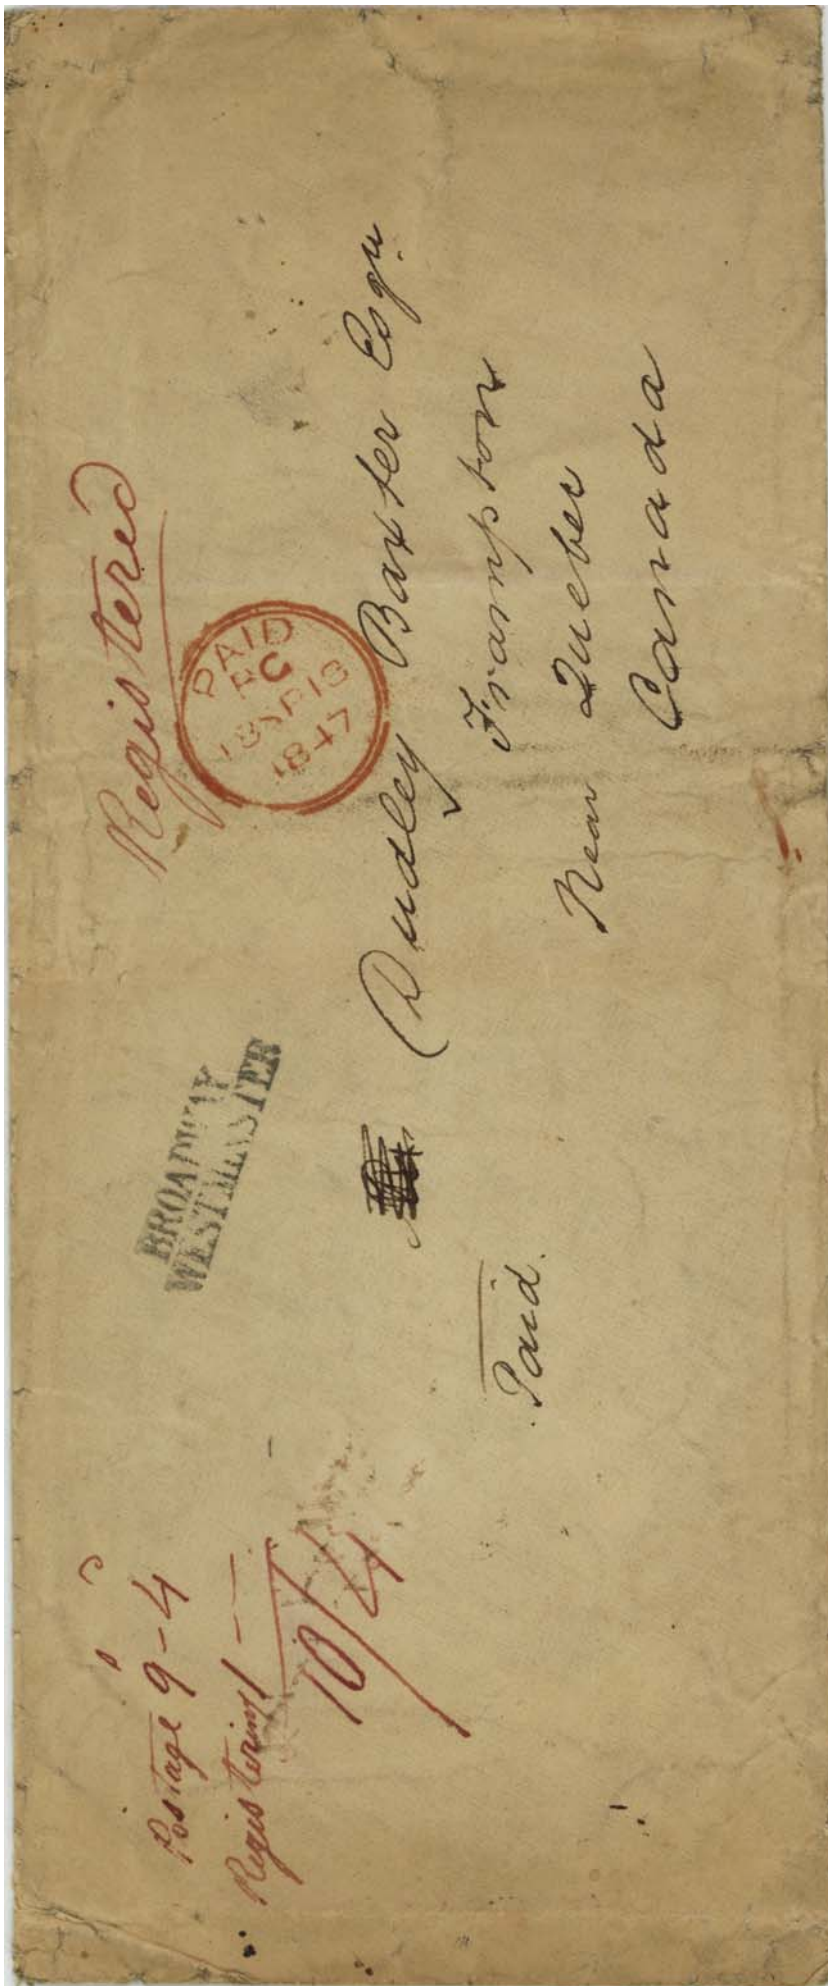 Postage 9-4
Registering 1 - -
10/4
BROADWAY
WESTMINSTER
Registered
PAID
1847
Dudley Baxter Esqr.
Frampton
Near Quebec
Canada
Paid.